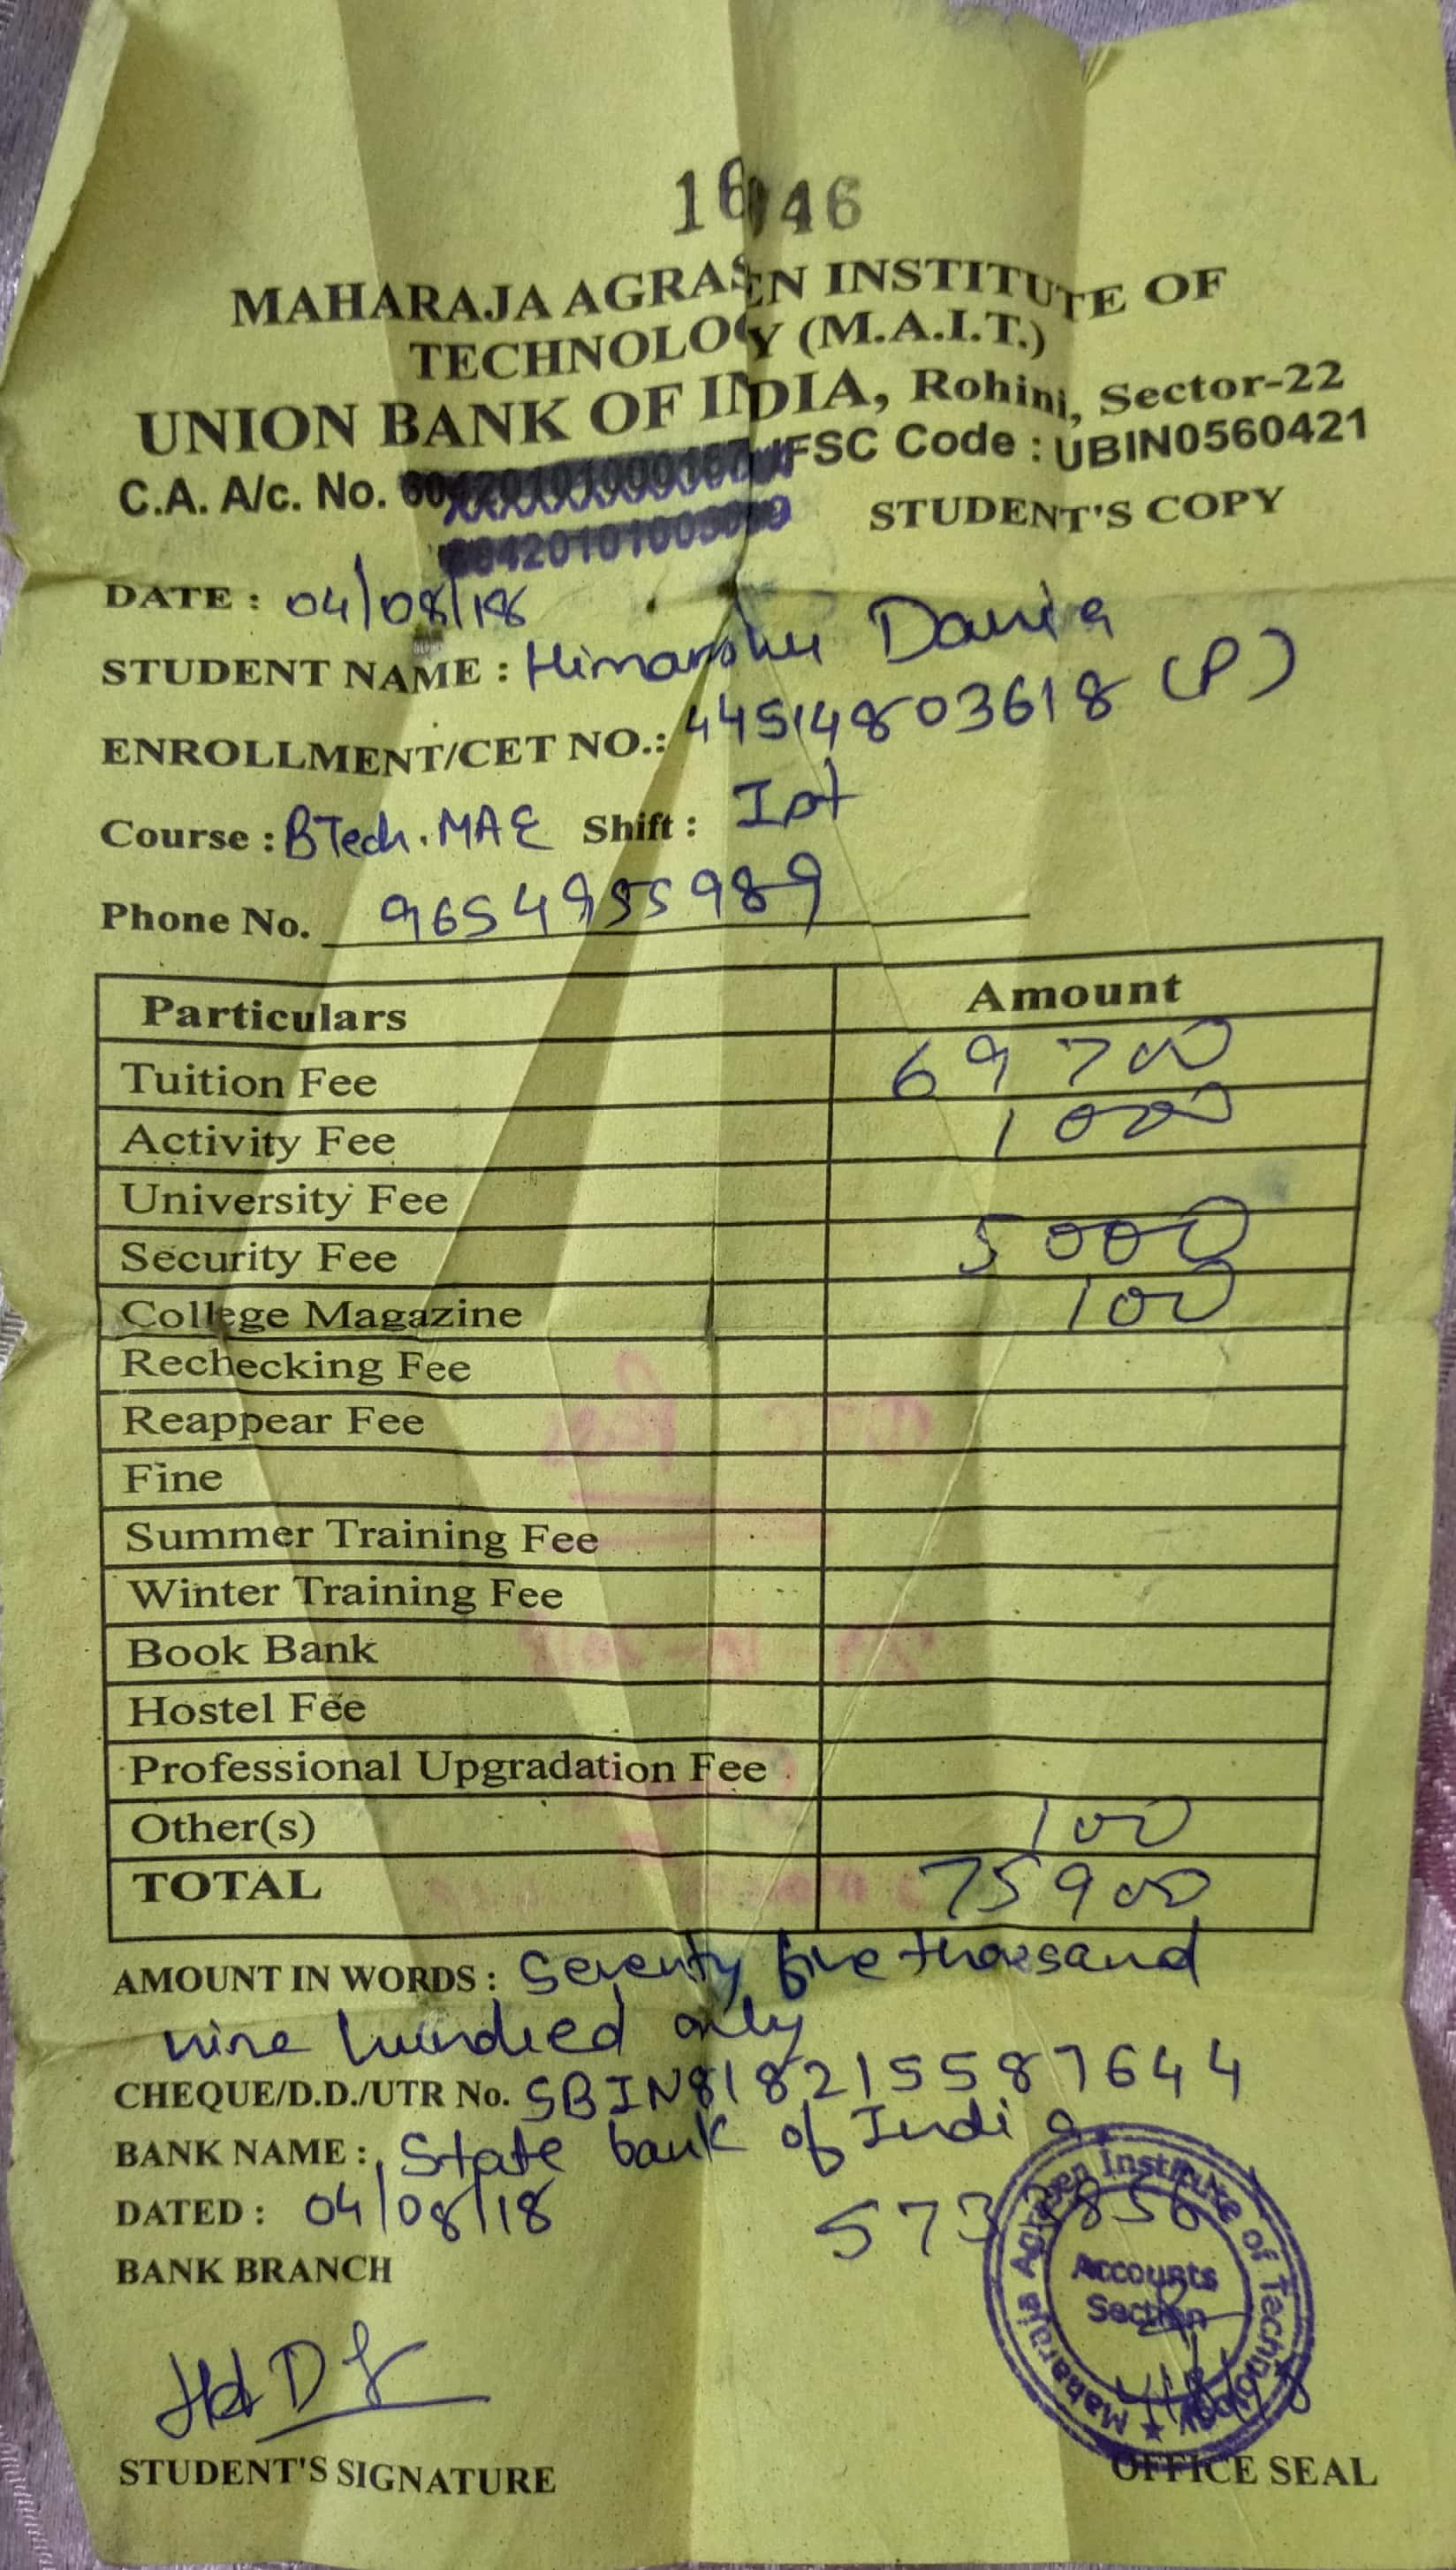 MAHARAJA AGRASEN INSTITUTE OF
TECHNOLOGY (M.A.I.T.)
UNION BANK OF INDIA, Rohini, Sector-22
C.A. A/c. No. IFSC Code : UBIN0560421
STUDENT'S COPY
DATE : 04/08/18
STUDENT NAME : Himanshu
ENROLLMENT/CET NO.: 44514803618 (P)
Course : BTech. MAE Shift : Ist
Phone No. 9654955989
Particulars Amount
Tuition Fee 69700
Activity Fee 1000
University Fee
Security Fee 5000
College Magazine 100
Rechecking Fee
Reappear Fee
Fine
Summer Training Fee
Winter Training Fee
Book Bank
Hostel Fee
Professional Upgradation Fee
Other(s) 100
TOTAL 75900
AMOUNT IN WORDS : Seventy five thousand
nine hundred only
CHEQUE/D.D./UTR No. SBIN818215587644
BANK NAME : State bank of India
DATED : 04/08/18
BANK BRANCH
Maharaja Agrasen Institute of Technology
Accounts
Section
STUDENT'S SIGNATURE
OFFICE SEAL